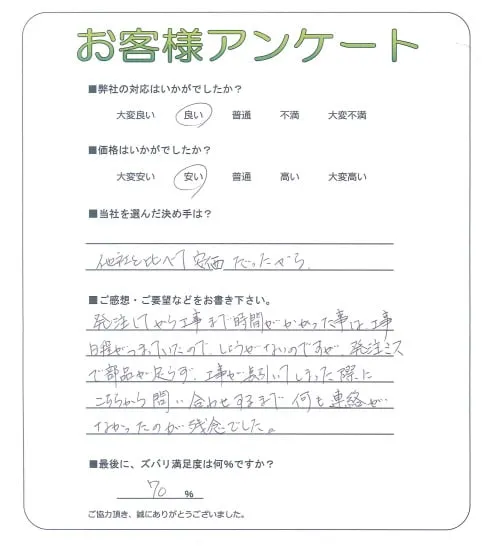 お客様アンケート
■弊社の対応はいかがでしたか？
大変良い 良い 普通 不満 大変不満
■価格はいかがでしたか？
大変安い 安い 普通 高い 大変高い
■当社を選んだ決め手は？
他社と比べて安価だったから。
■ご感想・ご要望などをお書き下さい。
発注してから工事まで時間がかかった事は、工事
日程がつまっていたので、しょうがないのですが、発注ミス
で部品が足らず、工事が長引いてしまった際に
こちらから問い合わせするまで何も連絡が
なかったのが残念でした。
■最後に、ズバリ満足度は何%ですか？
70 %
ご協力頂き、誠にありがとうございました。